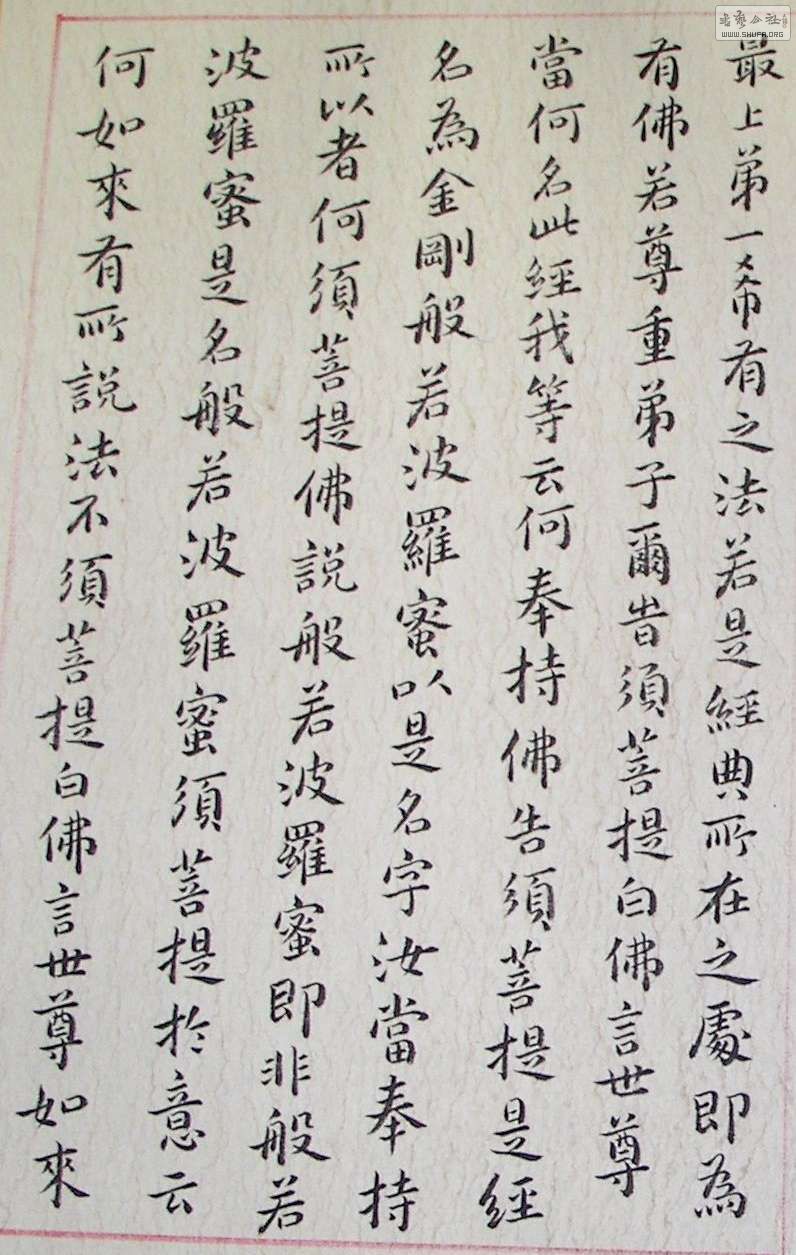 最上弟一希有之法若是經典所在之處即為
有佛若尊重弟子爾時須菩提白佛言世尊
當何名此經我等云何奉持佛告須菩提是經
名為金剛般若波羅蜜以是名字汝當奉持
所以者何須菩提佛說般若波羅蜜即非般若
波羅蜜是名般若波羅蜜須菩提於意云
何如來有所說法不須菩提白佛言世尊如來
WWW.SHUFA.ORG